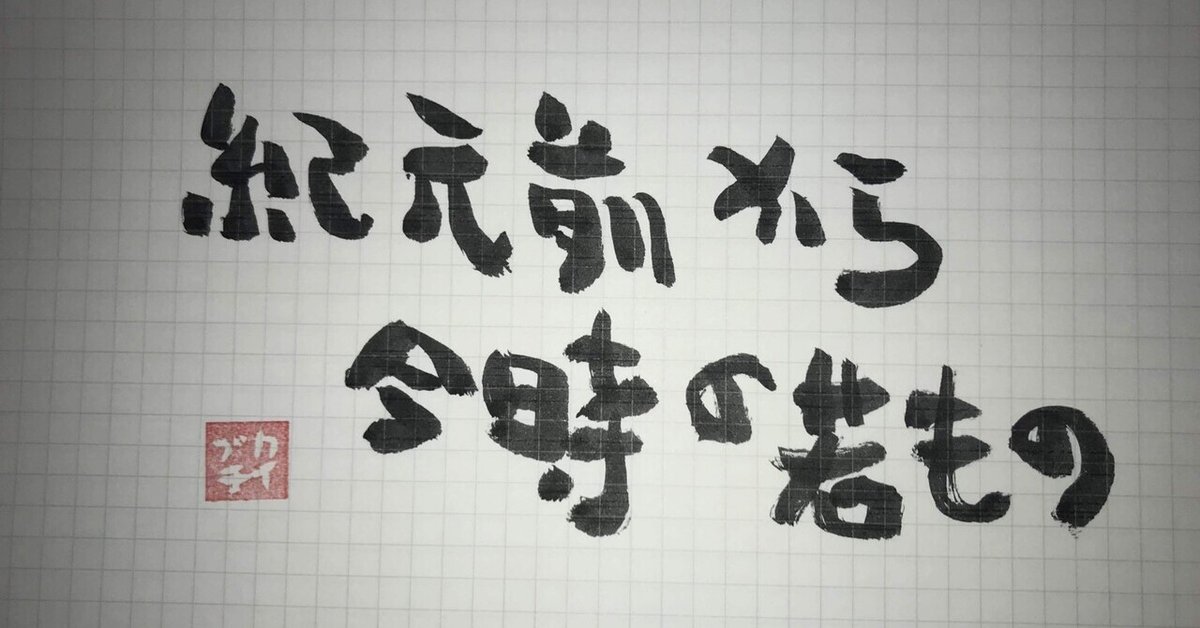 紀元前から
今時の若もの
カイ
ブチ